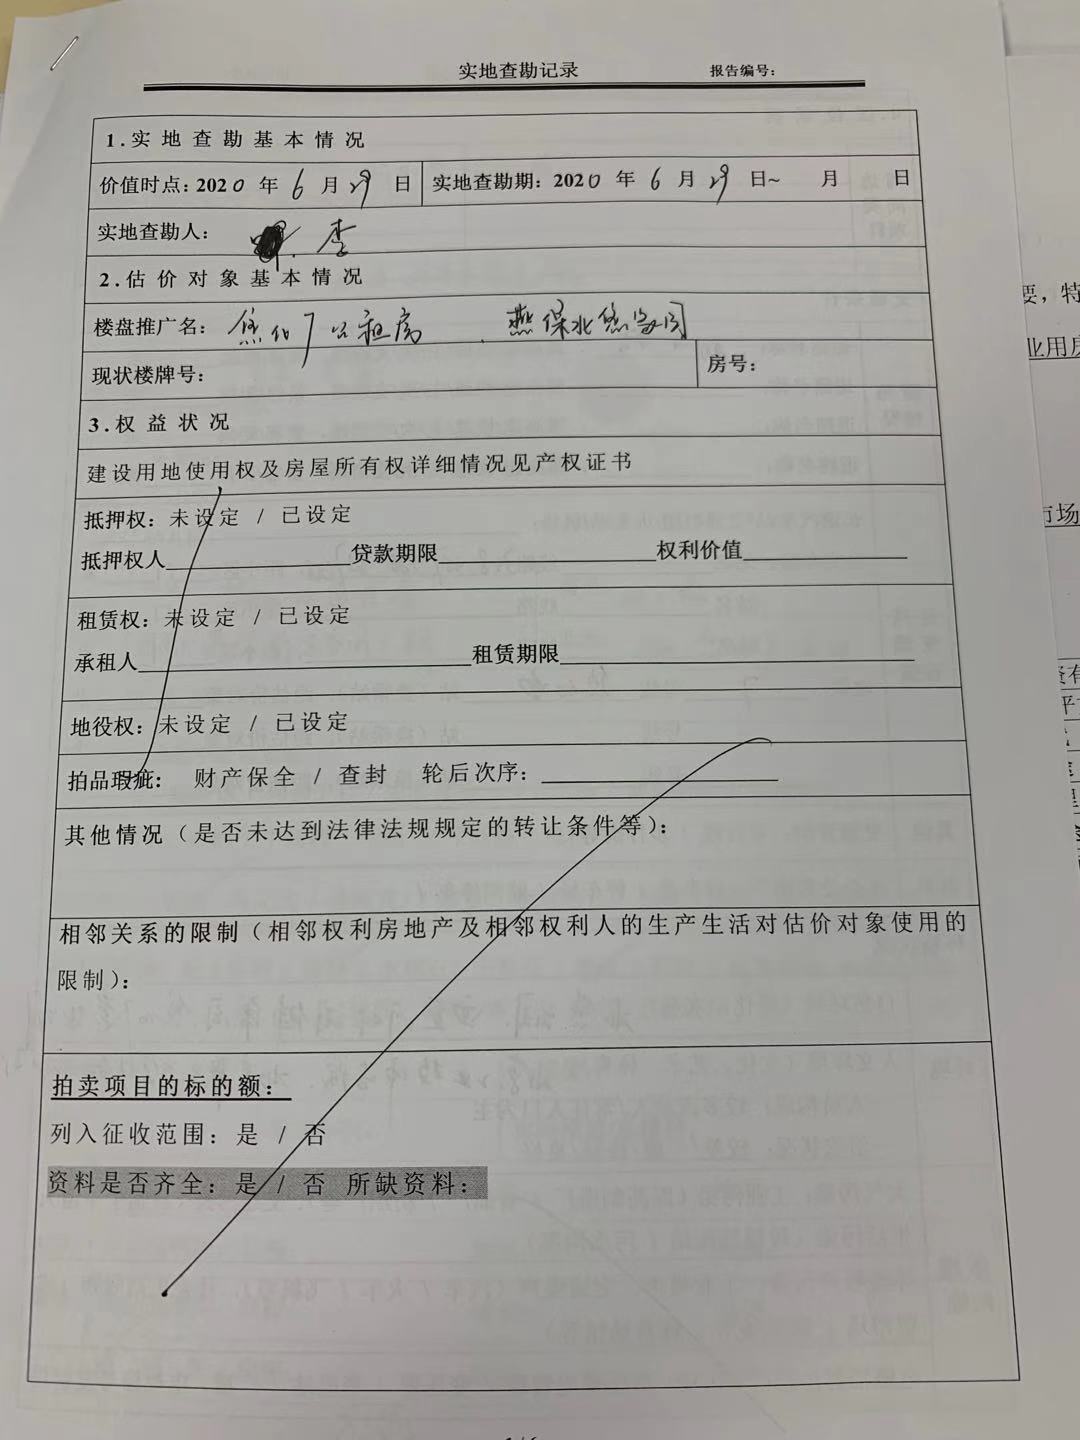 实地查勘记录 报告编号：
1.实地查勘基本情况
价值时点：2020 年 6 月 29 日 实地查勘期：2020 年 6 月 29 日~ 月 日
实地查勘人： 李
2.估价对象基本情况
楼盘推广名：焦化厂公租房 、燕保北焦家园
现状楼牌号： 房号：
3.权益状况
建设用地使用权及房屋所有权详细情况见产权证书
抵押权：未设定 / 已设定
抵押权人 贷款期限 权利价值
租赁权：未设定 / 已设定
承租人 租赁期限
地役权：未设定 / 已设定
拍品瑕疵： 财产保全 / 查封 轮后次序：
其他情况（是否未达到法律法规规定的转让条件等）：
相邻关系的限制（相邻权利房地产及相邻权利人的生产生活对估价对象使用的
限制）：
拍卖项目的标的额：
列入征收范围：是 / 否
资料是否齐全：是 / 否 所缺资料：
要，特
业用房
市场